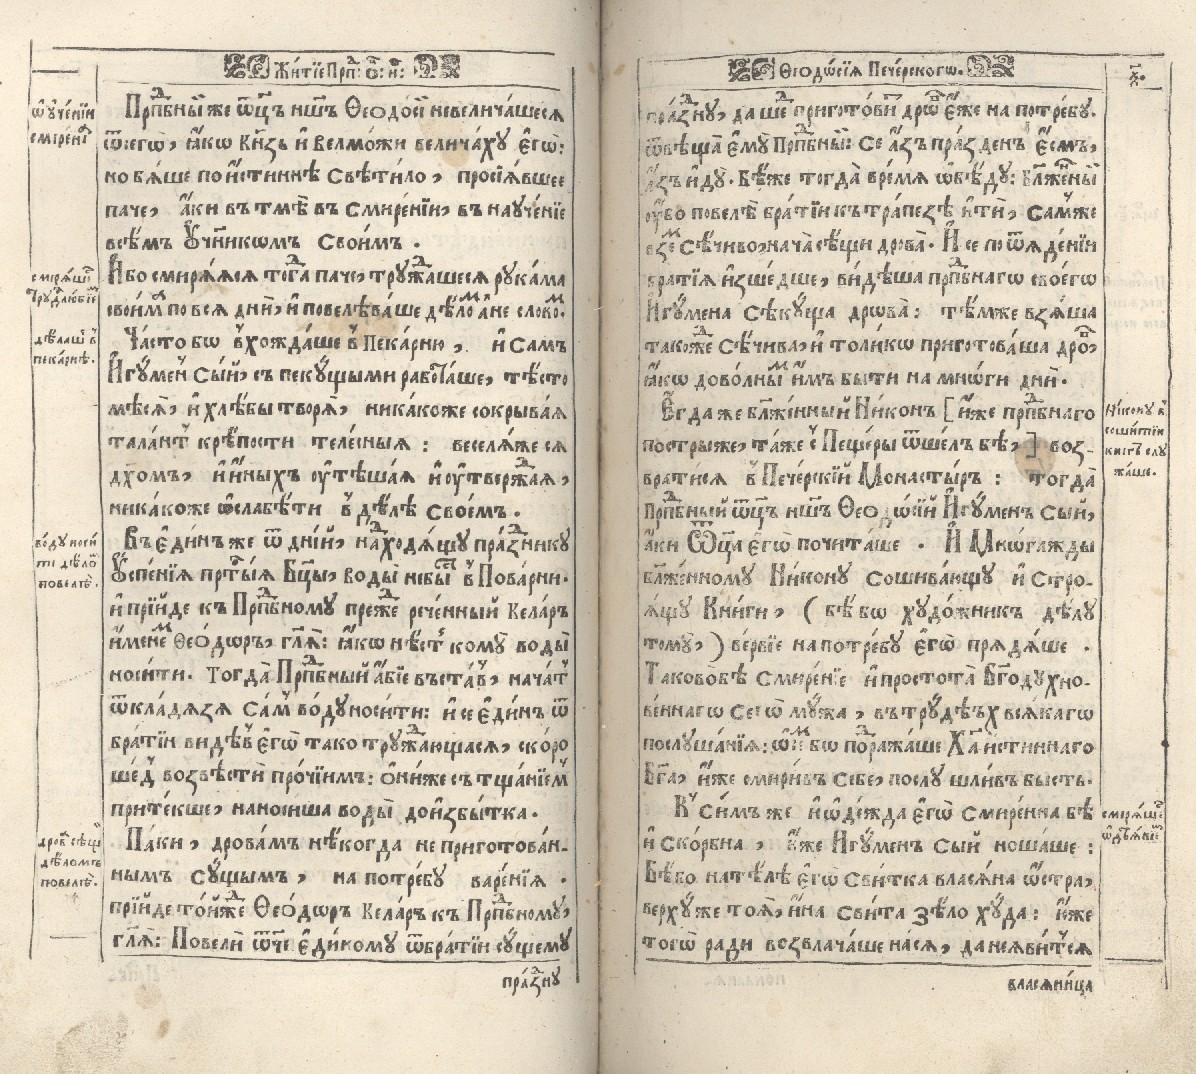 Житїе Прпⷣ: Ѻ҃: н҃:
ѽ оу҆че́нїи
смире́нїѧ
Прпⷣбны́й же ѿц҃ъ нш҃ъ Ѳеодо́сї невелича́шесѧ
ѿсегѡ̀, ꙗ҆́кѡ Кн҃зь и҆ Велмо́жи велича́ху є҆гѡ̀:
но бѧ́ше по и҆́стиннѣ Свѣти́ло, просїѧ́вшее
паче, а҆́ки въ тмѣ̀ въ Смире́нїи, въ науче́нїе
всѣ́мъ Оу҆чн҃икѡмъ Свои́мъ.
И҆́бо смирѧ́ѧсѧ тогⷣа паче, тружⷣа́шесѧ рука́ма
свои́мⷨа по всѧ̀ дни̑, и҆ повелѣва́ше дѣ́ломⷨ а҆ не слово́мⷨ.
смирѧ́ше
Трудⷣолю́бїемъ
дѣлаше в̾
пека́рнѣ.
Ча́сто бо в̾хожда́ше в̾ Пека́рню, и҆ Са́мъ
И҆гу́менъ Сы́й, съ пеку́щыми рабо́таше, тѣ́сто
мѣ́сѧ, и҆ хлѣ́бы творѧ̀, ника́коже сокрыва́ѧ
тала́нтъ крѣ́пости тѣле́сныѧ: веселѧ́же сѧ
дх҃омъ, и҆ и҆́ныхъ оу҆тѣша́ѧ и҆ оу҆твержⷣа́ѧ,
ника́коже ѡ҆слабѣ́ти в̾ дѣ́лѣ Свое́мъ.
во́ду носи́
ти дѣ́ломъ
повелѣ̀.
Въ є҆ди́нъ же ѿ дні́й, наⷣходѧ́щу пра́зⷣнику
Оу҆спе́нїѧ прⷭ҇ты́ѧ Бц҃ы, воды̀ не бы́сть в̾ Пова́рни.
и҆ прїи́де къ Прпⷣбному пре́жⷣе рече́нный Кела́ръ
и҆́менемⷨ Ѳео́дѡръ, гл҃ѧ: ꙗ҆́кѡ нѣ́сть кому̀ воды̀
носи́ти. Тогда̀ Прпⷣбный а҆́бїе въста́въ, нача́тъ
ѿ кла́дѧзѧ Са́мъ во́ду носи́ти: и҆ се є҆ди́нъ ѿ
бра́тїи ви́дѣвъ є҆гѡ̀ тако тружⷣа́ющасѧ, ско́ро
ше́дъ возвѣстѝ про́чїимъ: ѻ҆ни́же съ тща́нїемъ
прите́кше, наноси́ша воды̀ до и҆збы́тка.
дровъ сѣщѝ
дѣ́ломъ
повелѣ̀.
Па́ки, дрова́мъ нѣ́когда не пригото́ван-
нымъ су́щымъ, на потре́бу варе́нїѧ.
прїи́де то́йжⷣе Ѳео́дѡръ Кела́ръ къ Прпⷣбному,
гл҃ѧ: Повели̑ ѿч҃е є҆ди́ному ѿ бра́тїи су́щему
пра́зⷣну
Ѳеодо́сїѧ Пече́рскогѡ.
пра́зⷣну, да ше́дⷣ пригото́витъ дро́вⷡ є҆́же на потре́бу.
ѿвѣща̀ є҆му̀ Прпⷣбный: Се а҆́зъ пра́зденъ є҆́смь,
а҆́зъ и҆ду̀. Бѣ́же тогда̀ вре́мѧ ѡ҆бѣ́ду: Бл҃же́нный
оу҆́бо повелѣ̀ бра́тїи къ тра́пезѣ и҆тѝ, Са́мже
взе́мⷨ Сѣ́чиво, нача̀ сѣ́щи дрова̀. И҆ се по ѿѧде́нїи
бра́тїѧ и҆зше́дше, ви́дѣша прпⷣбнаго своегѡ̀
И҆гу́мена Сѣку́ща дрѡва̀: тѣ́мже взѧ́ша
такожⷣе Сѣ́чива, и҆ толи́кѡ приготова́ша дро́въ,
ꙗ҆́кѡ дово́лнымⷨ и҆̀мъ бы́ти на мнѡ́ги дни̑.
Є҆гда́ же бл҃же́нный Ни́конъ [и҆́же прпⷣбнаго
постри́же, та́же ѿ Пеще́ры ѿше́лъ бѣ̀,] воз-
врати́сѧ в̾ Пече́рскїй Монасты́р: тогда̀
Прпⷣбный ѿц҃ъ нш҃ъ Ѳеодѡ́сїй И҆гу́менъ Сы́й,
а҆́ки Ѿц҃а є҆гѡ̀ почита́ше. И҆ Мнѡ́гажды
бл҃же́нному Ни́кону Сошива́ющу и҆ Стро-
ѧ́щу Кни́ги, (бѣ́ бо худо́жникъ дѣ́лу
тому̀,) ве́рвїе на потре́бу є҆гѡ̀ прѧдѧ́ше.
Таково̀ бѣ̀ Смире́нїе и҆ простота̀ Бг҃одухно-
ве́ннагѡ Сегѡ̀ му́жа, въ труд́ѣхъ всѧ́кагѡ
послуша́нїѧ: ѡ҆́нъ бо поⷣража́ше Хⷭ҇а и҆́стиннаго
Бг҃а, и҆́же смири́въ Себѐ, послу́шливъ бы́сть.
Ни́кону в̾
сошитїи
кни́гъ слу
жа́ше.
К̾ Си́мъ же и҆ ѡ҆де́жда є҆гѡ̀ Смире́нна бѣ̀
и҆ Ско́рбна, ю҆́же И҆гу́менъ Сы́й ноша́ше:
Бѣ́бо на тѣ́лѣ є҆гѡ̀ Сви́тка власѧ́на ѡ҆стра,
верху́ же тоѧ̀, и҆́на Сви́та ѕѣ́ло худа̀: ю҆́же
тогѡ̀ ра́ди возвлача́ше на сѧ̀, да не ꙗ҆ви́тсѧ
смирѧ́ше
власѧни́ца